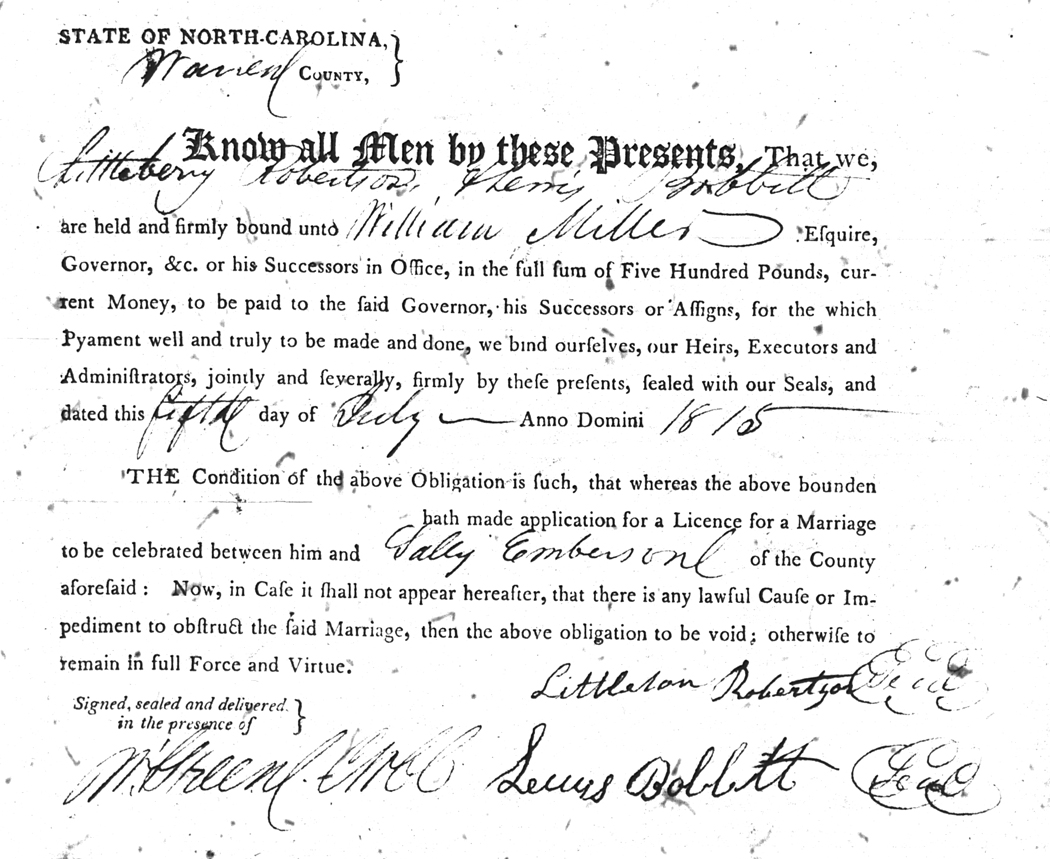 STATE OF NORTH-CAROLINA, }
Warren COUNTY, }
Know all Men by these Presents, That we,
Littleberry Robertson, & Lewis Bobbitt
are held and firmly bound unto William Miller Eſquire,
Governor, &c. or his Succeſſors in Office, in the full ſum of Five Hundred Pounds, cur-
rent Money, to be paid to the ſaid Governor, his Succeſſors or Aſſigns, for the which
Pyament well and truly to be made and done, we bind ourſelves, our Heirs, Executors and
Adminiſtrators, jointly and ſeverally, firmly by theſe preſents, ſealed with our Seals, and
dated this fifth day of July Anno Domini 1815
THE Condition of the above Obligation is ſuch, that whereas the above bounden
hath made application for a Licence for a Marriage
to be celebrated between him and Sally Emberson of the County
aforeſaid: Now, in Caſe it ſhall not appear hereafter, that there is any lawful Cauſe or Im-
pediment to obſtruct the ſaid Marriage, then the above obligation to be void; otherwiſe to
remain in full Force and Virtue.
Littleton Robertson Seal
Signed, sealed and delivered }
in the presence of }
Wm Green CWCC Lewis Bobbitt Seal